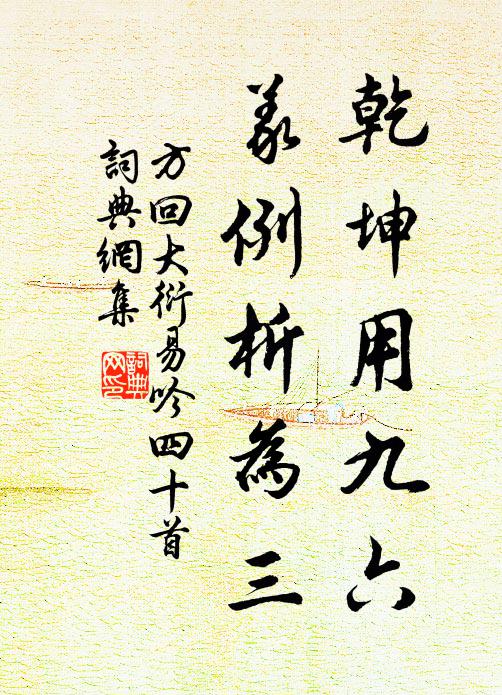 乾坤用九六
義例析為三
方回大衍易吟四十首
詞典網集
詞典
网印